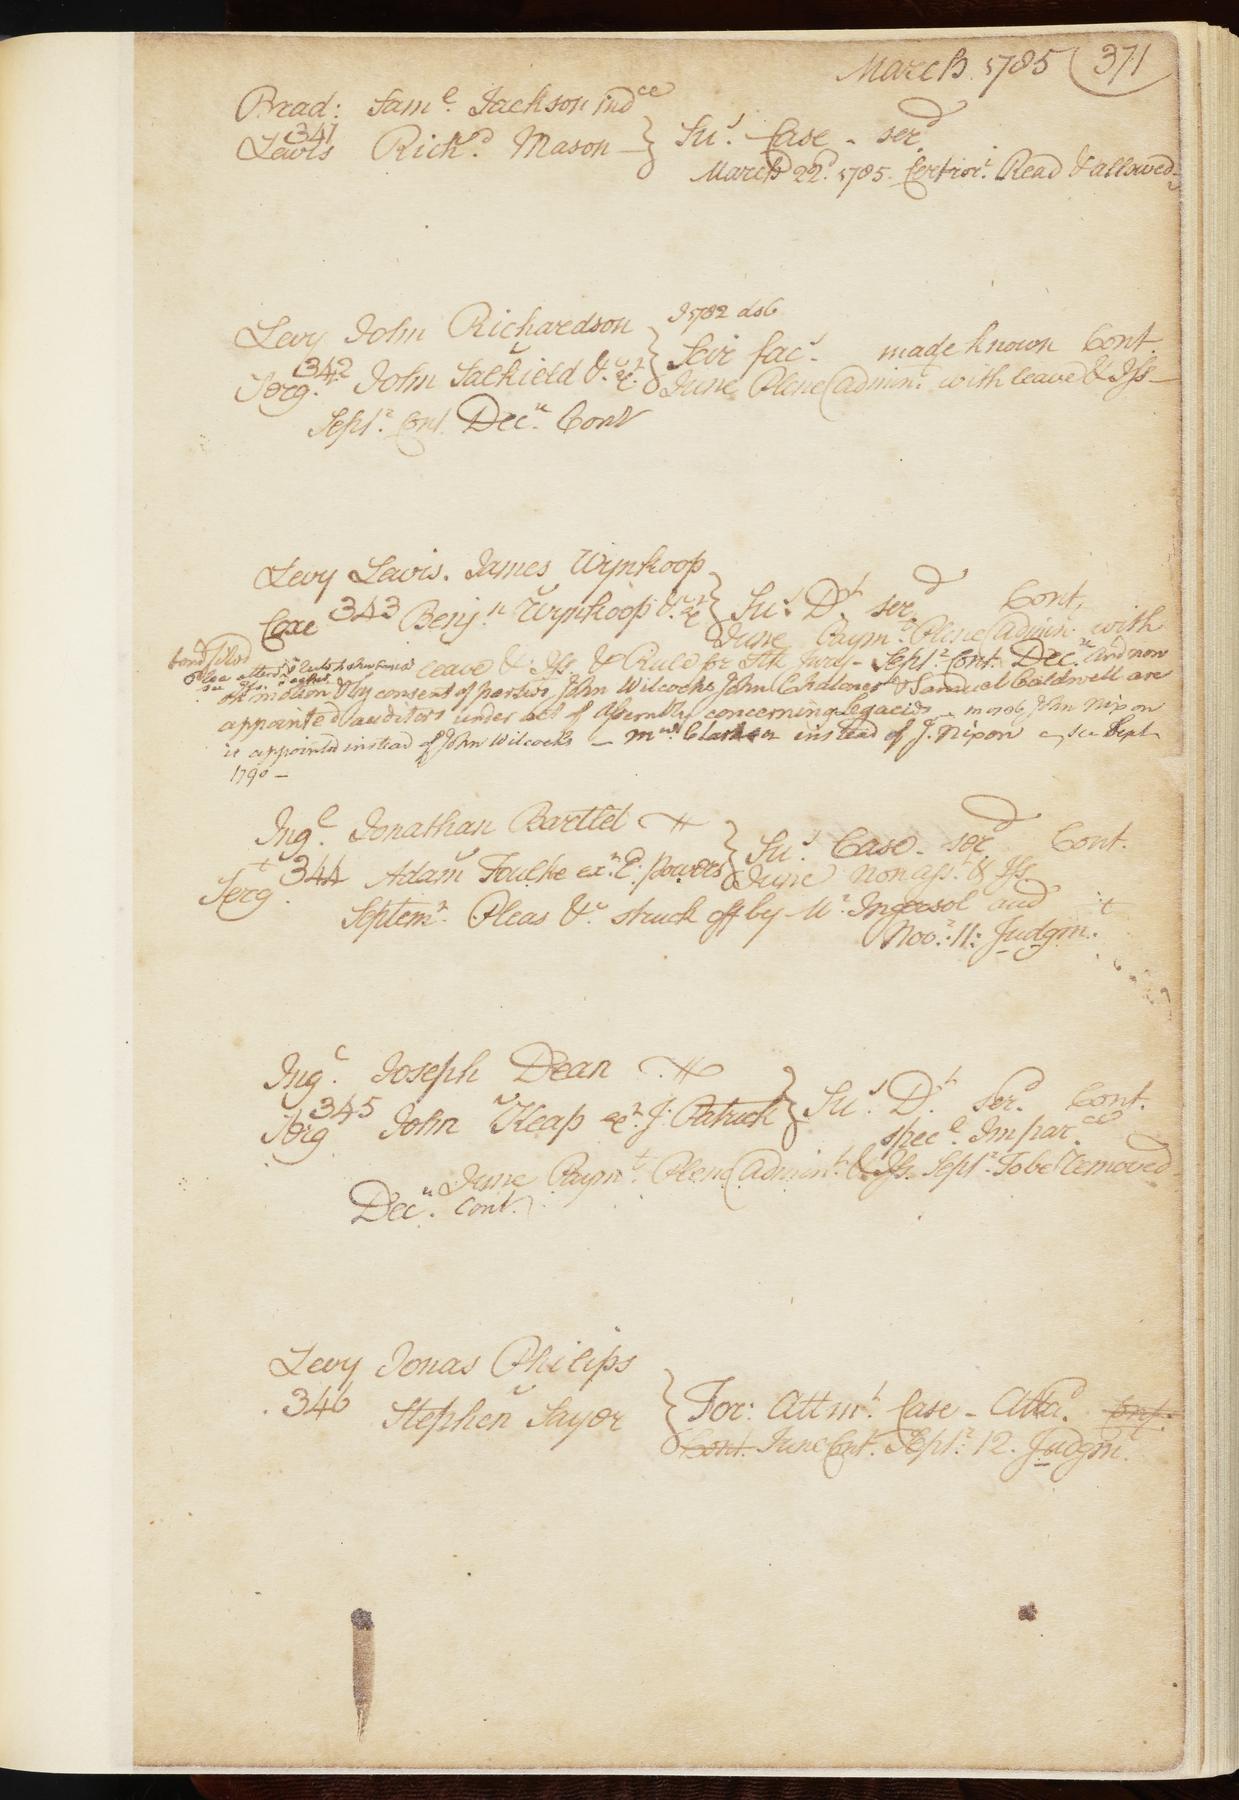 March 1785 (371
Brad: Sam.l Jackson ind.ce
341
Lewis Rick.d Mason } Su.s Case - ser.d
March 22.d 1785. Certior.i Read & allowed
Levy John Richardson J 1782 d
342
Serg.t John Salkield &c } Scir fac.s made known Cont.
June Plene Admin.t with leave & Iss
Sept.r Cont. Dec.r Cont
Levy Lewis. James Wynkoop
Coxe 343 Benj.n Wynkoop &c } Su.s D.t ser.d Cont.
June Paym.t Plene Admin.t with
bond filed
leave &c Iss & Rule for Stk Jury - Sept.r Cont. Dec.r And now
on motion & by consent of parties John Wilcocks John Chaloner & Samuel Caldwell are
appointed auditors under act of Assembly concerning Legacies John Nixon
is appointed instead of John Wilcocks - Clarkson instead of J. Nixon see Sept.
1790 -
Ing.l Jonathan Bartlet
Serg.t 344 Adam Foulke ex.r E. Powers } Su.s Case - ser.d Cont.
June non ass.t & Iss
Septem.r Pleas &c struck off by M.r Ingersol and
Nov.r 11: Judgm.t
Ing.l Joseph Dean
345
Serg John Keap ex.r J. Patrick } Su.s D.t ser.d Cont.
spec.l Impar.ce
June Paym.t Plene Admin.t & Iss. Sept.r To be Removed
Dec.r Cont.
Levy Jonas Philips
346 Stephen Sayer } For: Attm.t Case - Atta.d Cont.
Cont. June Cont. Sept.r 12. Judgm.t